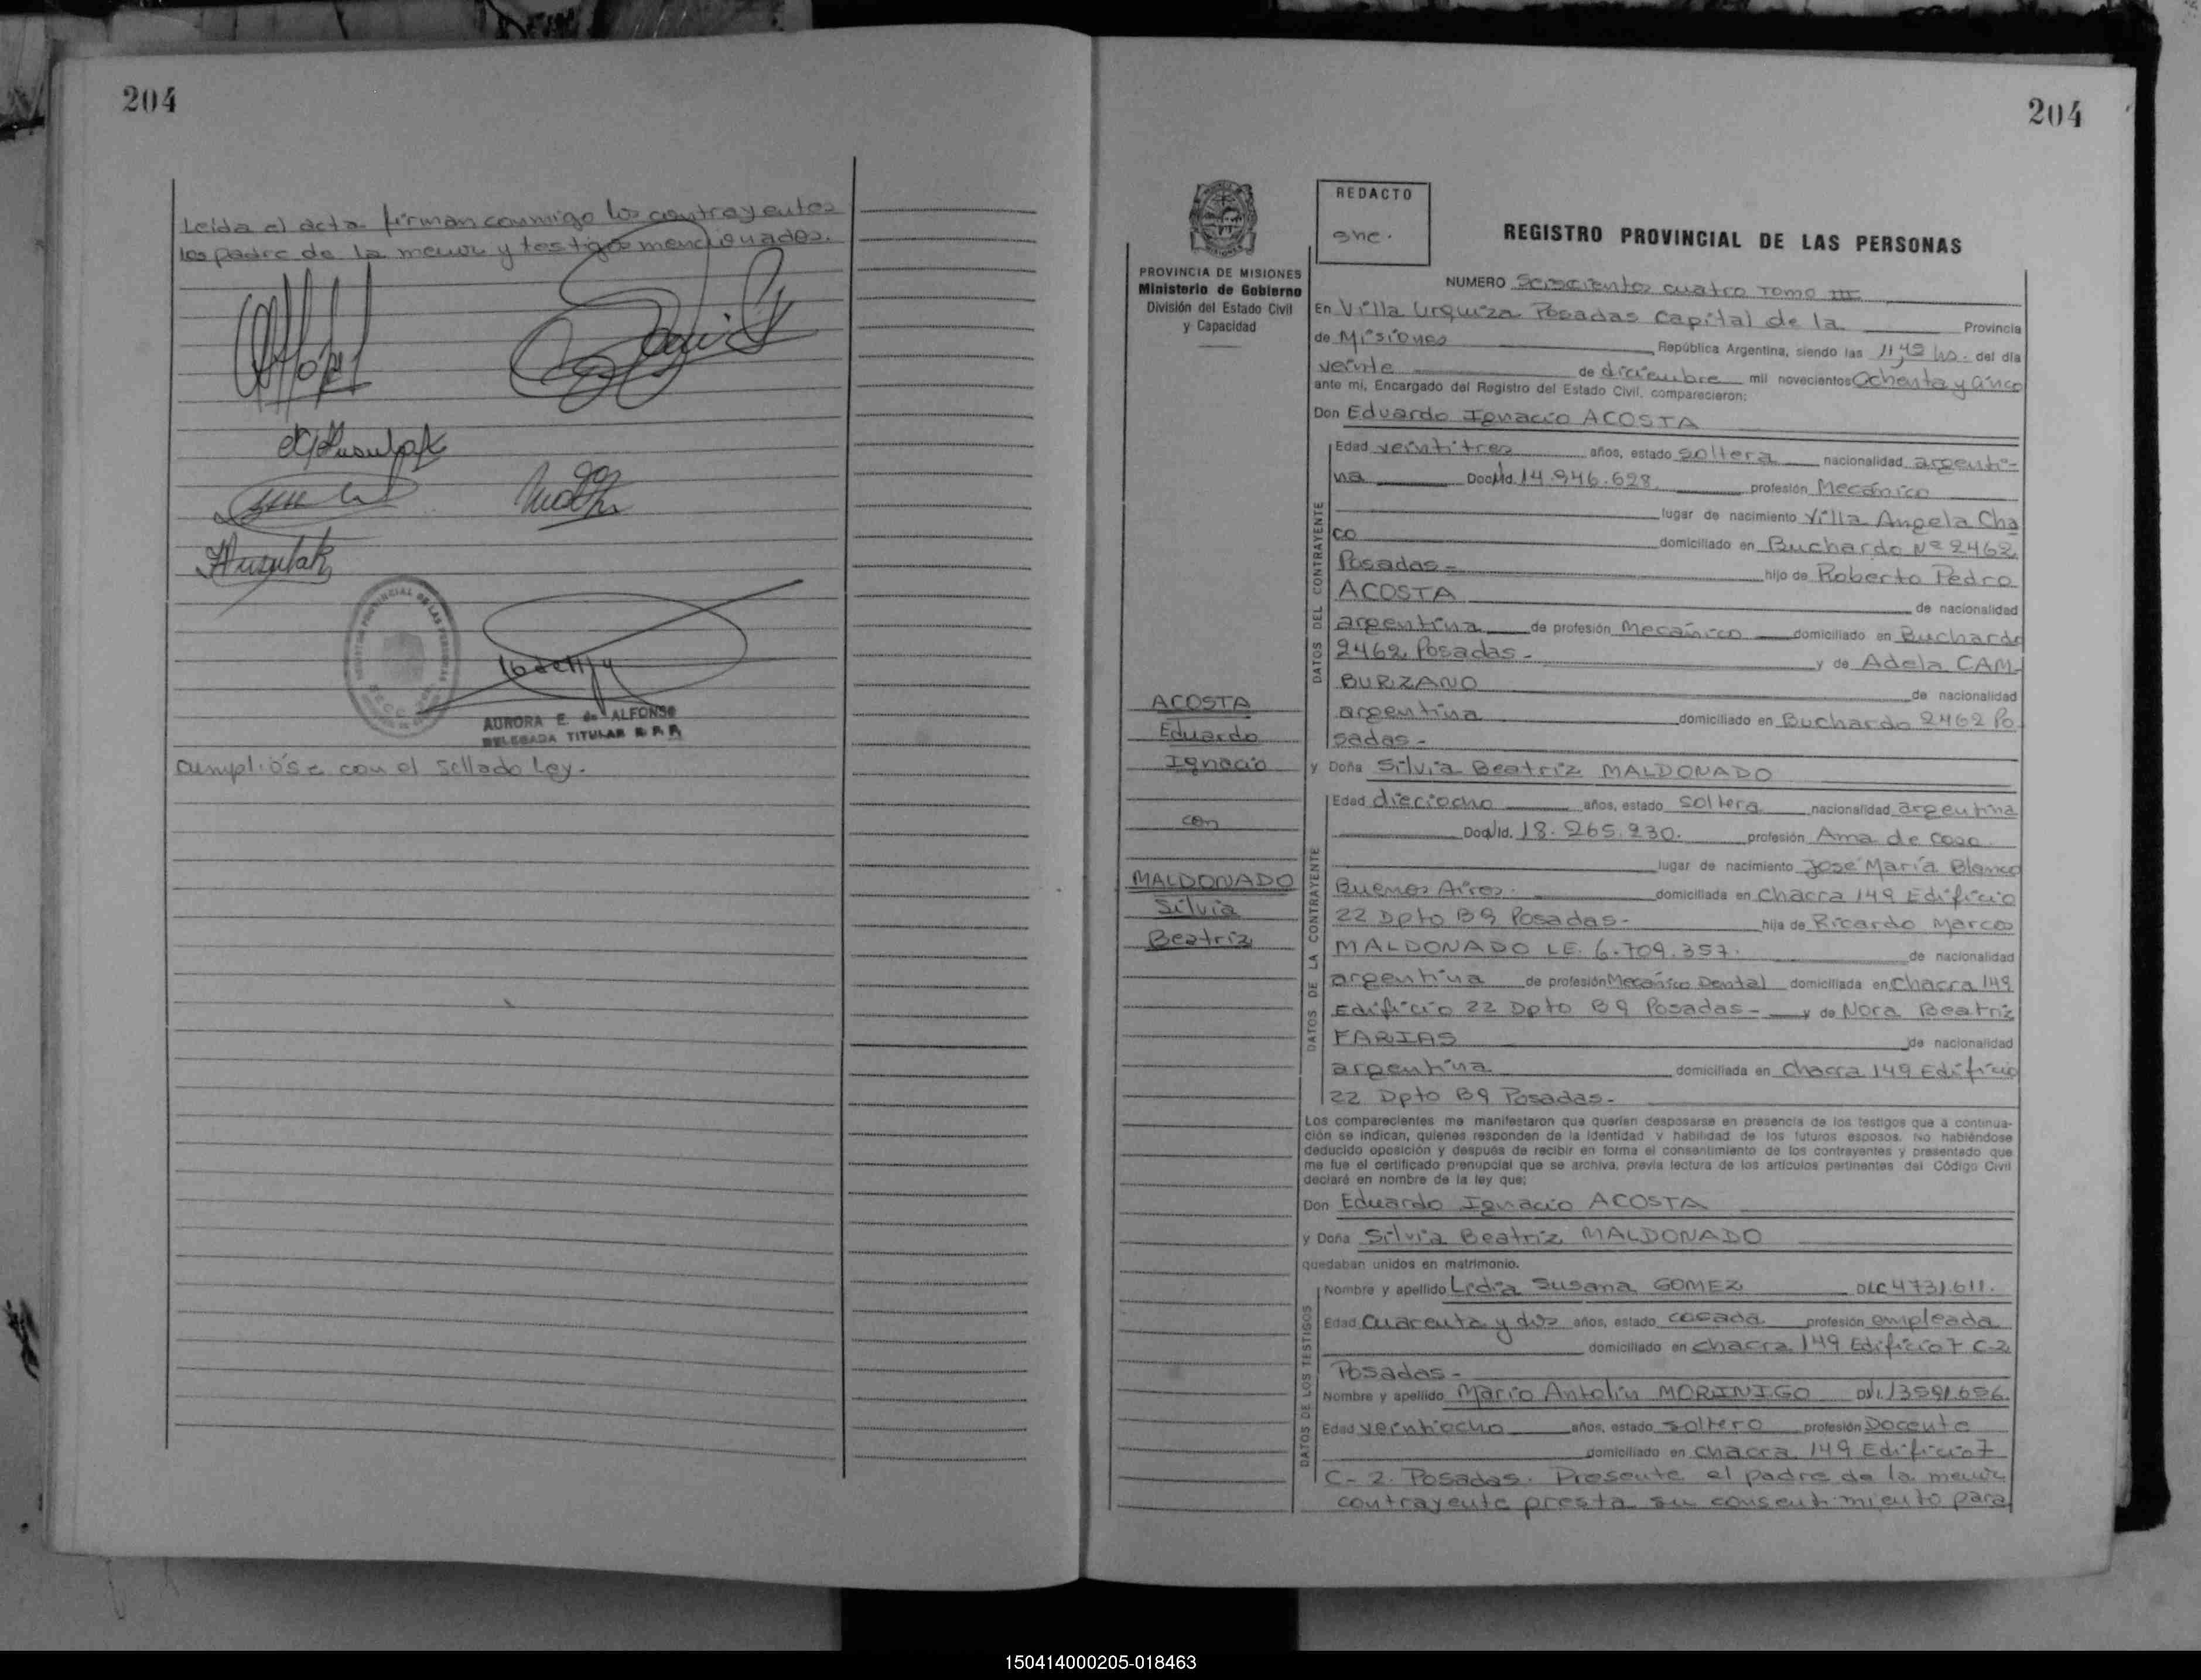 204
Leida el acta firman conmigo los contrayentes
los padre de la menor y testigos mencionados.
REGISTRO PROVINCIAL DE LAS PERSONAS
AURORA E. de ALFONSO
DELEGADA TITULAR R. P. P.
Cumplióse con el sellado Ley.
204
PROVINCIA DE MISIONES
Ministerio de Gobierno
División del Estado Civil
y Capacidad
ACOSTA
Eduardo
Ignacio
con
MALDONADO
Silvia
Beatriz
REDACTO
REGISTRO PROVINCIAL DE LAS PERSONAS
NUMERO Seiscientos cuatro Tomo III
En Villa Urquiza Posadas Capital de la Provincia
de Misiones República Argentina, siendo las 11,45 hs. del día
veinte de diciembre mil novecientos Ochenta y cinco
ante mi, Encargado del Registro del Estado Civil, comparecieron:
Don Eduardo Ignacio ACOSTA
DATOS DEL CONTRAYENTE
Edad veintitres años, estado soltera nacionalidad argenti-
na Doc. Id. 14.946.628. profesión Mecánico
lugar de nacimiento Villa Angela Cha
co domiciliado en Buchardo Nº 2462
Posadas- hijo de Roberto Pedro
ACOSTA de nacionalidad
argentina de profesión Mecánico domiciliado en Buchardo
2462 Posadas- y de Adela CAM-
BURZANO de nacionalidad
argentina domiciliado en Buchardo 2462 Po
sadas-
y Doña Silvia Beatriz MALDONADO
DATOS DE LA CONTRAYENTE
Edad dieciocho años, estado soltera nacionalidad argentina
Doc. Id. 18.265.230. profesión Ama de casa
lugar de nacimiento José María Blanco
Buenos Aires. domiciliada en Chacra 149 Edificio
22 Dpto B9 Posadas- hija de Ricardo Marcos
MALDONADO LE. 6.709.357. de nacionalidad
argentina de profesión Mecánico Dental domiciliada en Chacra 149
Edificio 22 Dpto B9 Posadas- y de Nora Beatriz
FARIAS de nacionalidad
argentina domiciliada en Chacra 149 Edificio
22 Dpto B9 Posadas-
Los comparecientes me manifestaron que querían desposarse en presencia de los testigos que a continua-
ción se indican, quienes responden de la identidad y habilidad de los futuros esposos. No habiéndose
deducido oposición y después de recibir en forma el consentimiento de los contrayentes y presentado que
me fue el certificado prenupcial que se archiva, previa lectura de los artículos pertinentes del Código Civil
declaré en nombre de la ley que:
Don Eduardo Ignacio ACOSTA
y Doña Silvia Beatriz MALDONADO
quedaban unidos en matrimonio.
DATOS DE LOS TESTIGOS
Nombre y apellido Lidia Susana GOMEZ DLC 4731.611.
Edad Cuarenta y dos años, estado casada profesión empleada
domiciliado en chacra 149 Edificio 7 C-2
Posadas-
Nombre y apellido Mario Antolin MORINIGO DNI. 13591.656.
Edad veintiocho años, estado soltero profesión Docente
domiciliado en chacra 149 Edificio 7
C-2. Posadas. Presente el padre de la menor
contrayente presta su consentimiento para
150414000205-018463